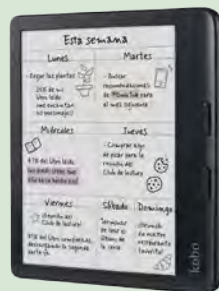 Esta semana
Lunes
- Regar las plantas
20% de mi
libro leído
¡me encantan
los personajes!
Martes
- Buscar
recomendaciones
de para
el mes siguiente
Miércoles
47% del libro leído
Jueves
- Comprar algo
de picar para la
reunión del
Club de lectura
Viernes
¡Reunión del
Club de lectura!
91% del libro completado,
descargando la segunda
parte
Sábado
Terminar
de leer el
último de
la serie
Domingo
en nuestro
restaurante
favorito!
kobo